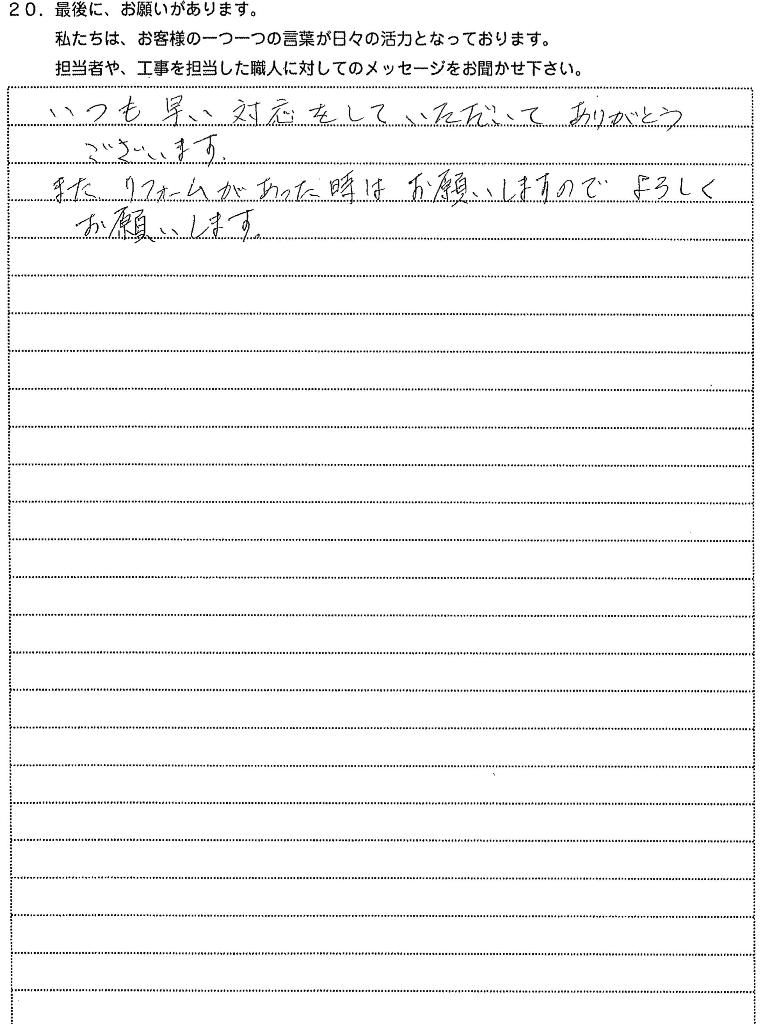 20. 最後に、お願いがあります。
私たちは、お客様の一つ一つの言葉が日々の活力となっております。
担当者や、工事を担当した職人に対してのメッセージをお聞かせ下さい。
いつも 早い 対応 をして いただいて ありがとう
ございます。
また リフォームが あった時は お願いしますので よろしく
お願いします。